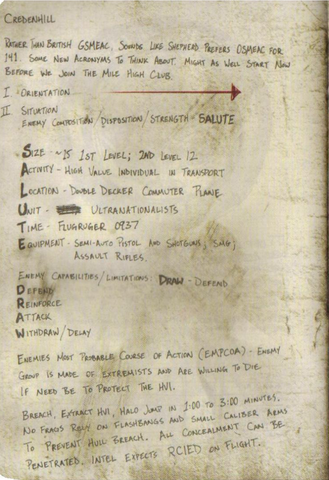 CREDENHILL
RATHER THAN BRITISH GSMEAC, SOUNDS LIKE SHEPHERD PREFERS OSMEAC FOR
141. SOME NEW ACRONYMS TO THINK ABOUT. MIGHT AS WELL START NOW
BEFORE WE JOIN THE MILE HIGH CLUB.
I ORIENTATION
II SITUATION
ENEMY COMPOSITION/DISPOSITION/STRENGTH - SALUTE
SIZE - ~15 1ST LEVEL; 2ND LEVEL 12
ACTIVITY - HIGH VALUE INDIVIDUAL IN TRANSPORT
LOCATION - DOUBLE DECKER COMMUTER PLANE
UNIT - ULTRANATIONALISTS
TIME - FLUGRUGER 0937
EQUIPMENT - SEMI-AUTO PISTOL AND SHOTGUNS; SMG;
ASSAULT RIFLES.
ENEMY CAPABILITIES/LIMITATIONS: DRAW - DEFEND
DEFEND
REINFORCE
ATTACK
WITHDRAW/DELAY
ENEMIES MOST PROBABLE COURSE OF ACTION (EMPCOA) - ENEMY
GROUP IS MADE OF EXTREMISTS AND ARE WILLING TO DIE
IF NEED BE TO PROTECT THE HVI.
BREACH, EXTRACT HVI, HALO JUMP IN 1:00 TO 3:00 MINUTES.
NO FRAGS RELY ON FLASHBANGS AND SMALL CALIBER ARMS
TO PREVENT HULL BREACH. ALL CONCEALMENT CAN BE
PENETRATED. INTEL EXPECTS RCIED ON FLIGHT.